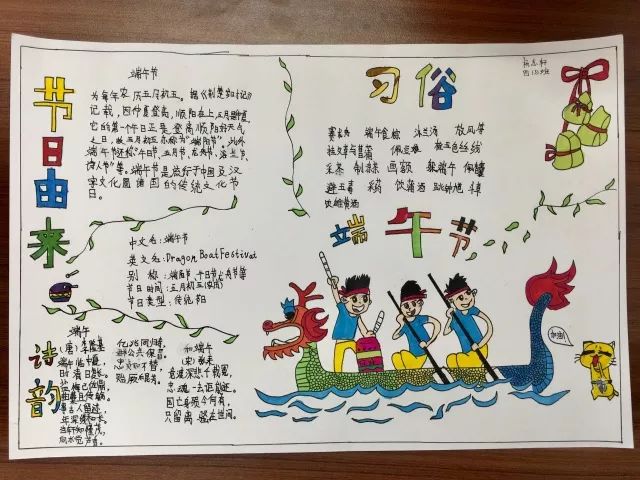 节日由来
端午节
为每年农历五月初五。据《荆楚岁时记》
记载，因仲夏登高，顺阳在上，五月是仲夏，
它的第一个午日正是登高顺阳好天气
之日，故五月初五亦称为"端阳节"。此外
端午节还称"午日节、五月节、龙舟节、浴兰节、
诗人节"等。端午节是流行于中国及汉
字文化圈诸国的传统文化节
日。
中文名：端午节
英文名：Dragon Boat Festival
别 称：端阳节、午日节、龙舟节等
节日时间：五月初五(农历)
节日类型：传统节日
习俗
赛龙舟 端午食粽 沐兰汤 放风筝
佩豆娘 拴五色丝线
画额 躲端午 佩香囊
避五毒 采药 饮蒲酒
饮雄黄酒
端午节
加油！
诗韵
端午
(唐)李隆基
端午临中夏，
时清日复长。
年深缕命长。
当轩知槿茂，
向水觉芦香。
亿兆同归寿，
群公共保昌。
忠贞如不替，
贻厥后昆芳。
和端午
(宋)张耒
竞渡深悲千载冤，
忠魂一去讵能还。
国亡身殒今何有，
只留离骚在世间。